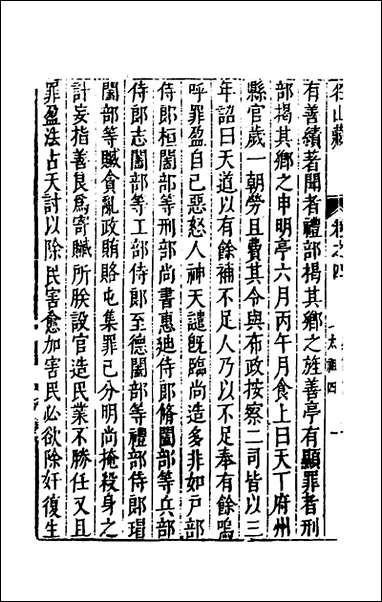 名山藏 卷之四 太祖四
有善績著聞者禮部揭其鄉之旌善亭有顯罪者刑
部揭其鄉之申明亭六月丙午月食上曰天丁府州
縣官歲一朝勞且費其令與布政按察二司皆以三
年詔曰天道以有餘補不足人乃以不足奉有餘嗚
呼罪盈自己惡怒人神天譴既臨尚造多非如戸部
侍郎桓閣部等刑部尚書惠迪侍郎脩閣部等兵部
侍郎志閣部等工部侍郎至德閣部等禮部侍郎瑁
閣部等贓貪亂政賄賂屯集罪己分明尚掩殺身之
計妄指善良爲寄贓所朕設官造民業不勝任又且
罪盈法占天討以除民害愈加害民必欲除奸復生